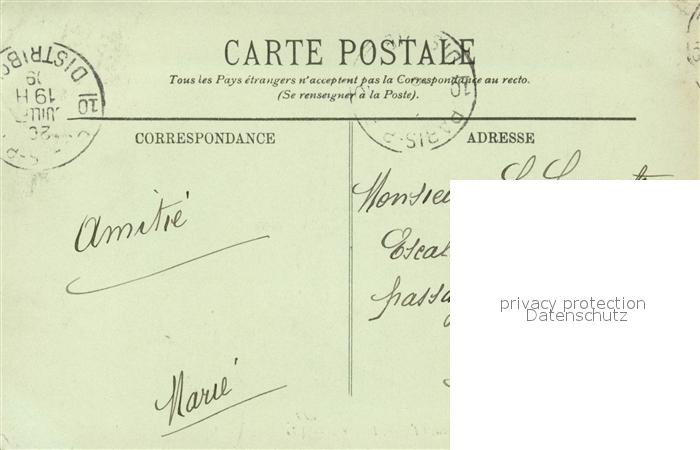 CARTE POSTALE
Tous les Pays étrangers n'acceptent pas la Correspondance au recto.
(Se renseigner à la Poste).
CORRESPONDANCE
ADRESSE
Amitié
Marié
Monsieu
Escal
passa
privacy protection
Datenschutz
DISTRIB
10
19 H
JUILL
26
10
PARIS